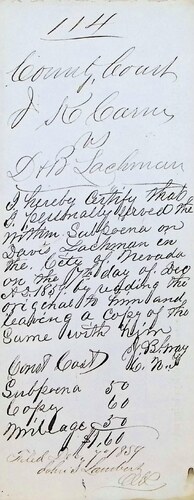 114
County Court
J K Carn
vs
D & B Lachman
I hereby Certify that
I personally served the
within Subpoena on
Dave Lachman in
the City of Nevada
on the 17th day of Dec
A.D. 1859 by reading the
original to him and
leaving a Copy of the
Same with him
J B Gray
C. N. T.
Const Cost
Subpoena 50
Copy 60
Millage 50
$1.60
Filed Dec 17th 1859
John Lambert